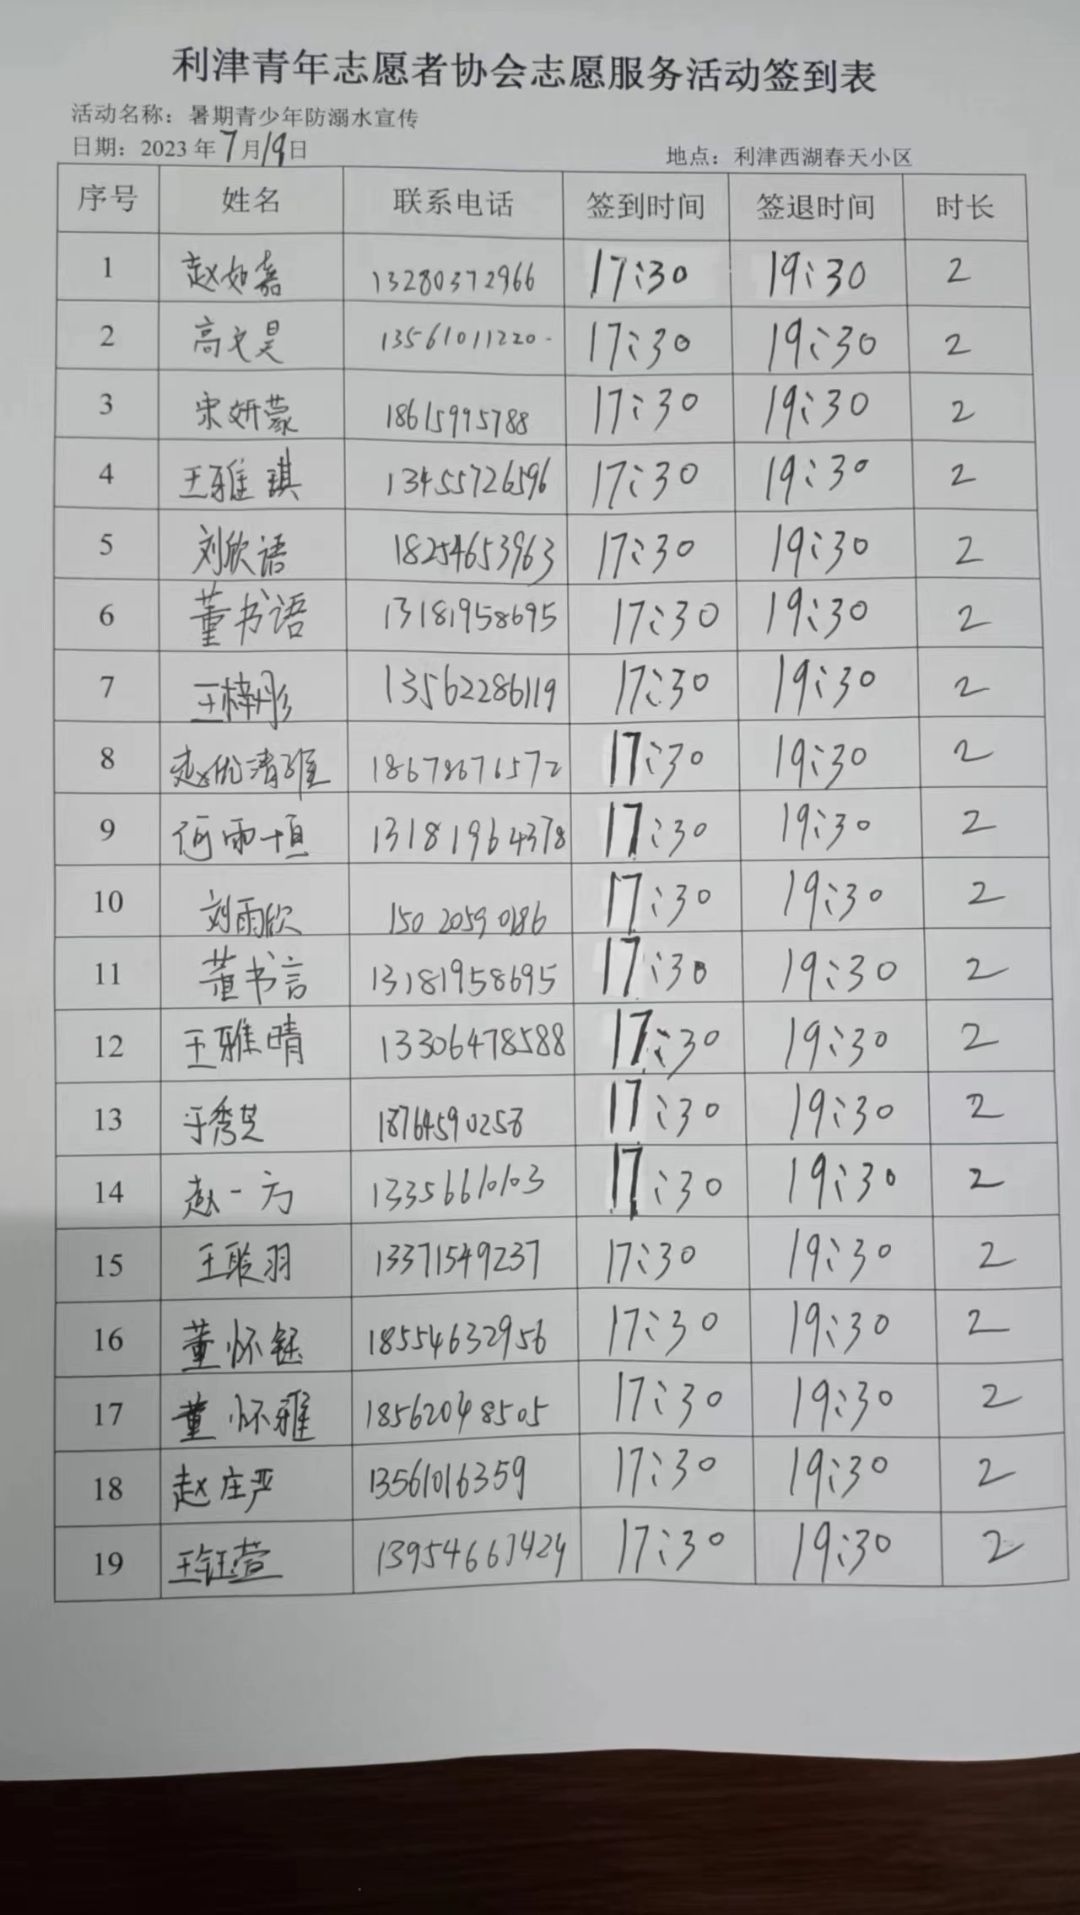 利津青年志愿者协会志愿服务活动签到表
活动名称：暑期青少年防溺水宣传
日期：2023年7月19日 地点：利津西湖春天小区
序号 姓名 联系电话 签到时间 签退时间 时长
1 赵如嘉 13280372966 17:30 19:30 2
2 高文昊 13561011220 17:30 19:30 2
3 宋妍蒙 18615995788 17:30 19:30 2
4 王雅琪 13455726596 17:30 19:30 2
5 刘欣语 18254653963 17:30 19:30 2
6 董书语 13181958695 17:30 19:30 2
7 王梓彤 13562286119 17:30 19:30 2
8 赵优清雅 18678676572 17:30 19:30 2
9 何雨恒 13181964378 17:30 19:30 2
10 刘雨欣 15020590186 17:30 19:30 2
11 董书言 13181958695 17:30 19:30 2
12 王雅晴 13306478588 17:30 19:30 2
13 于秀芝 18764590258 17:30 19:30 2
14 赵一方 13356610103 17:30 19:30 2
15 王聆羽 13371549237 17:30 19:30 2
16 董怀钰 18554632956 17:30 19:30 2
17 董怀雅 18562048505 17:30 19:30 2
18 赵庄严 13561016359 17:30 19:30 2
19 王钰萱 13954667424 17:30 19:30 2